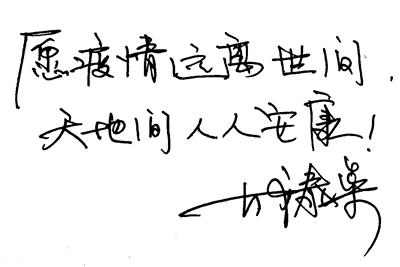 愿疫情远离世间，
天地间人人安康！